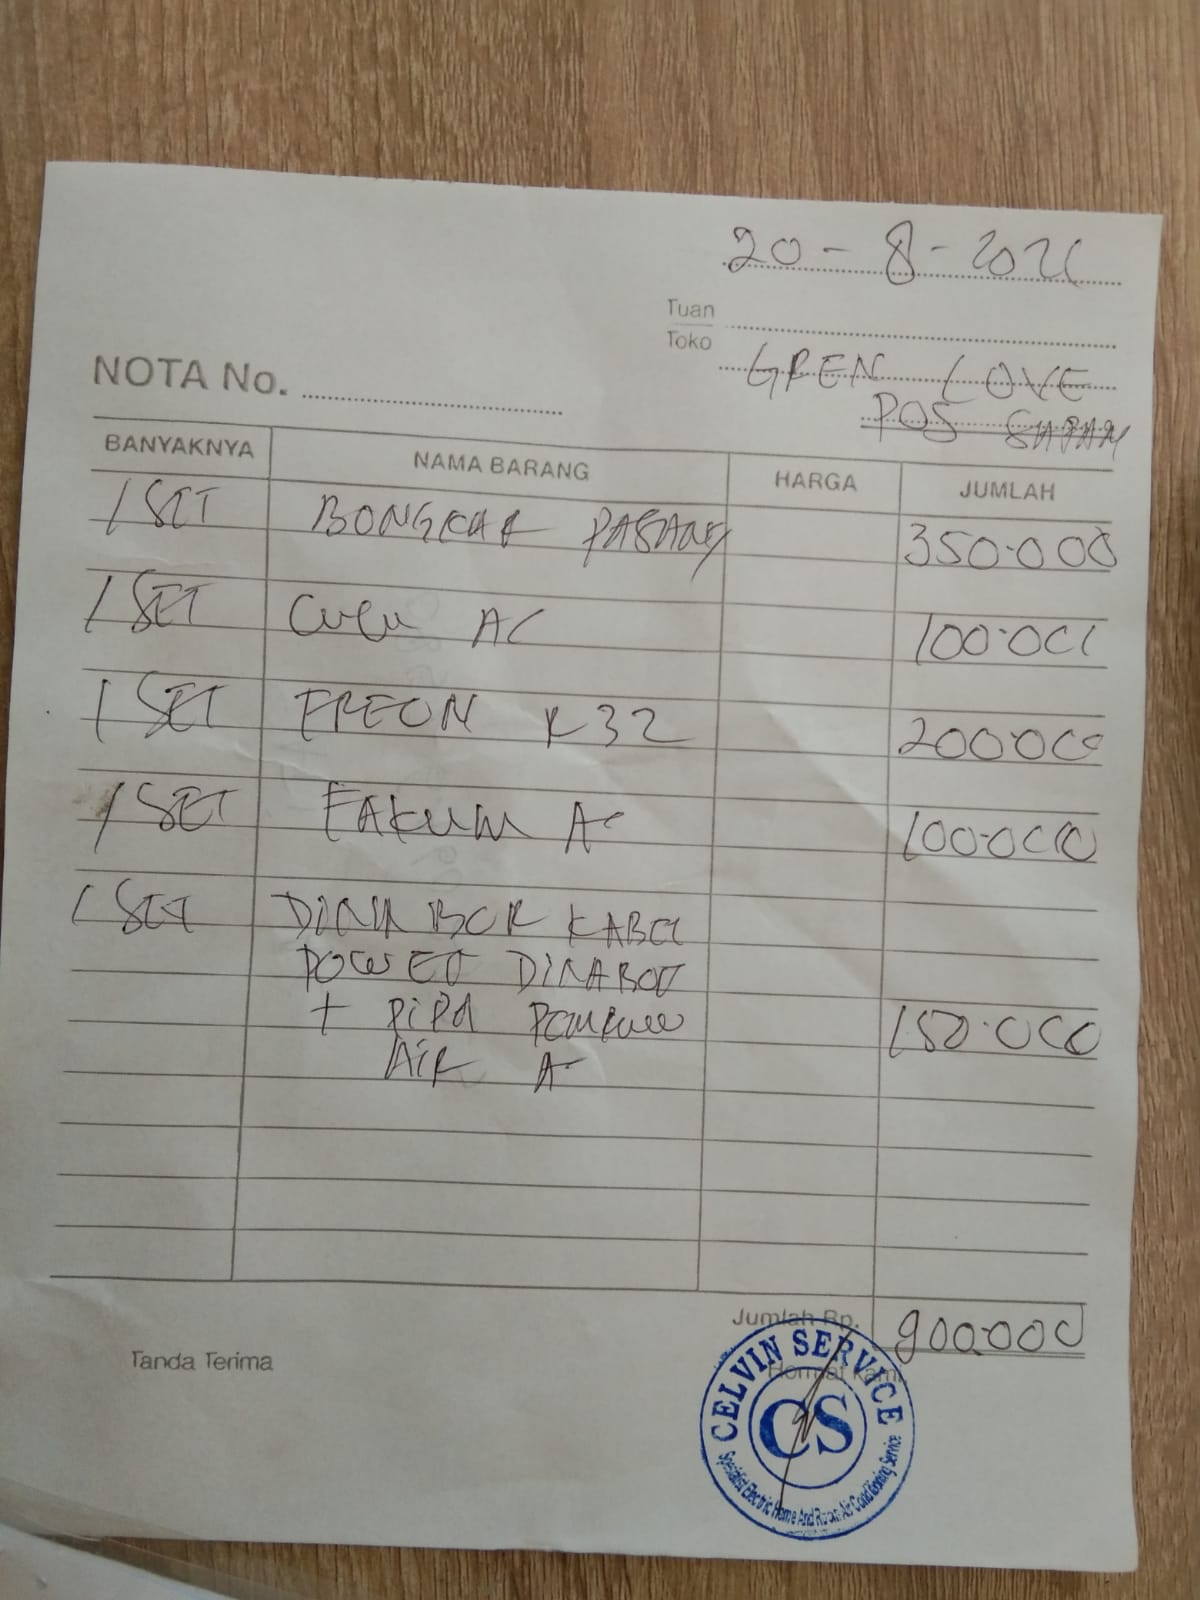 20-8-202
Tuan
Toko
GREN LOVE
POS SATPAM
NOTA No.
BANYAKNYA NAMA BARANG HARGA JUMLAH
1 SET BONGKAR PASANG 350.000
1 SET CUCI AC 100.000
1 SET FREON R32 200.000
1 SET FAKUM AC 100.000
1 SET DINABOR KABEL
POWER DINABOR
+ PIPA
AIR AC 150.000
Jumlah Rp. 900.000
Tanda Terima
Hormat Kami,
CELVIN SERVICE
CS
Specialist Electric Home And Room Air Conditioning Service